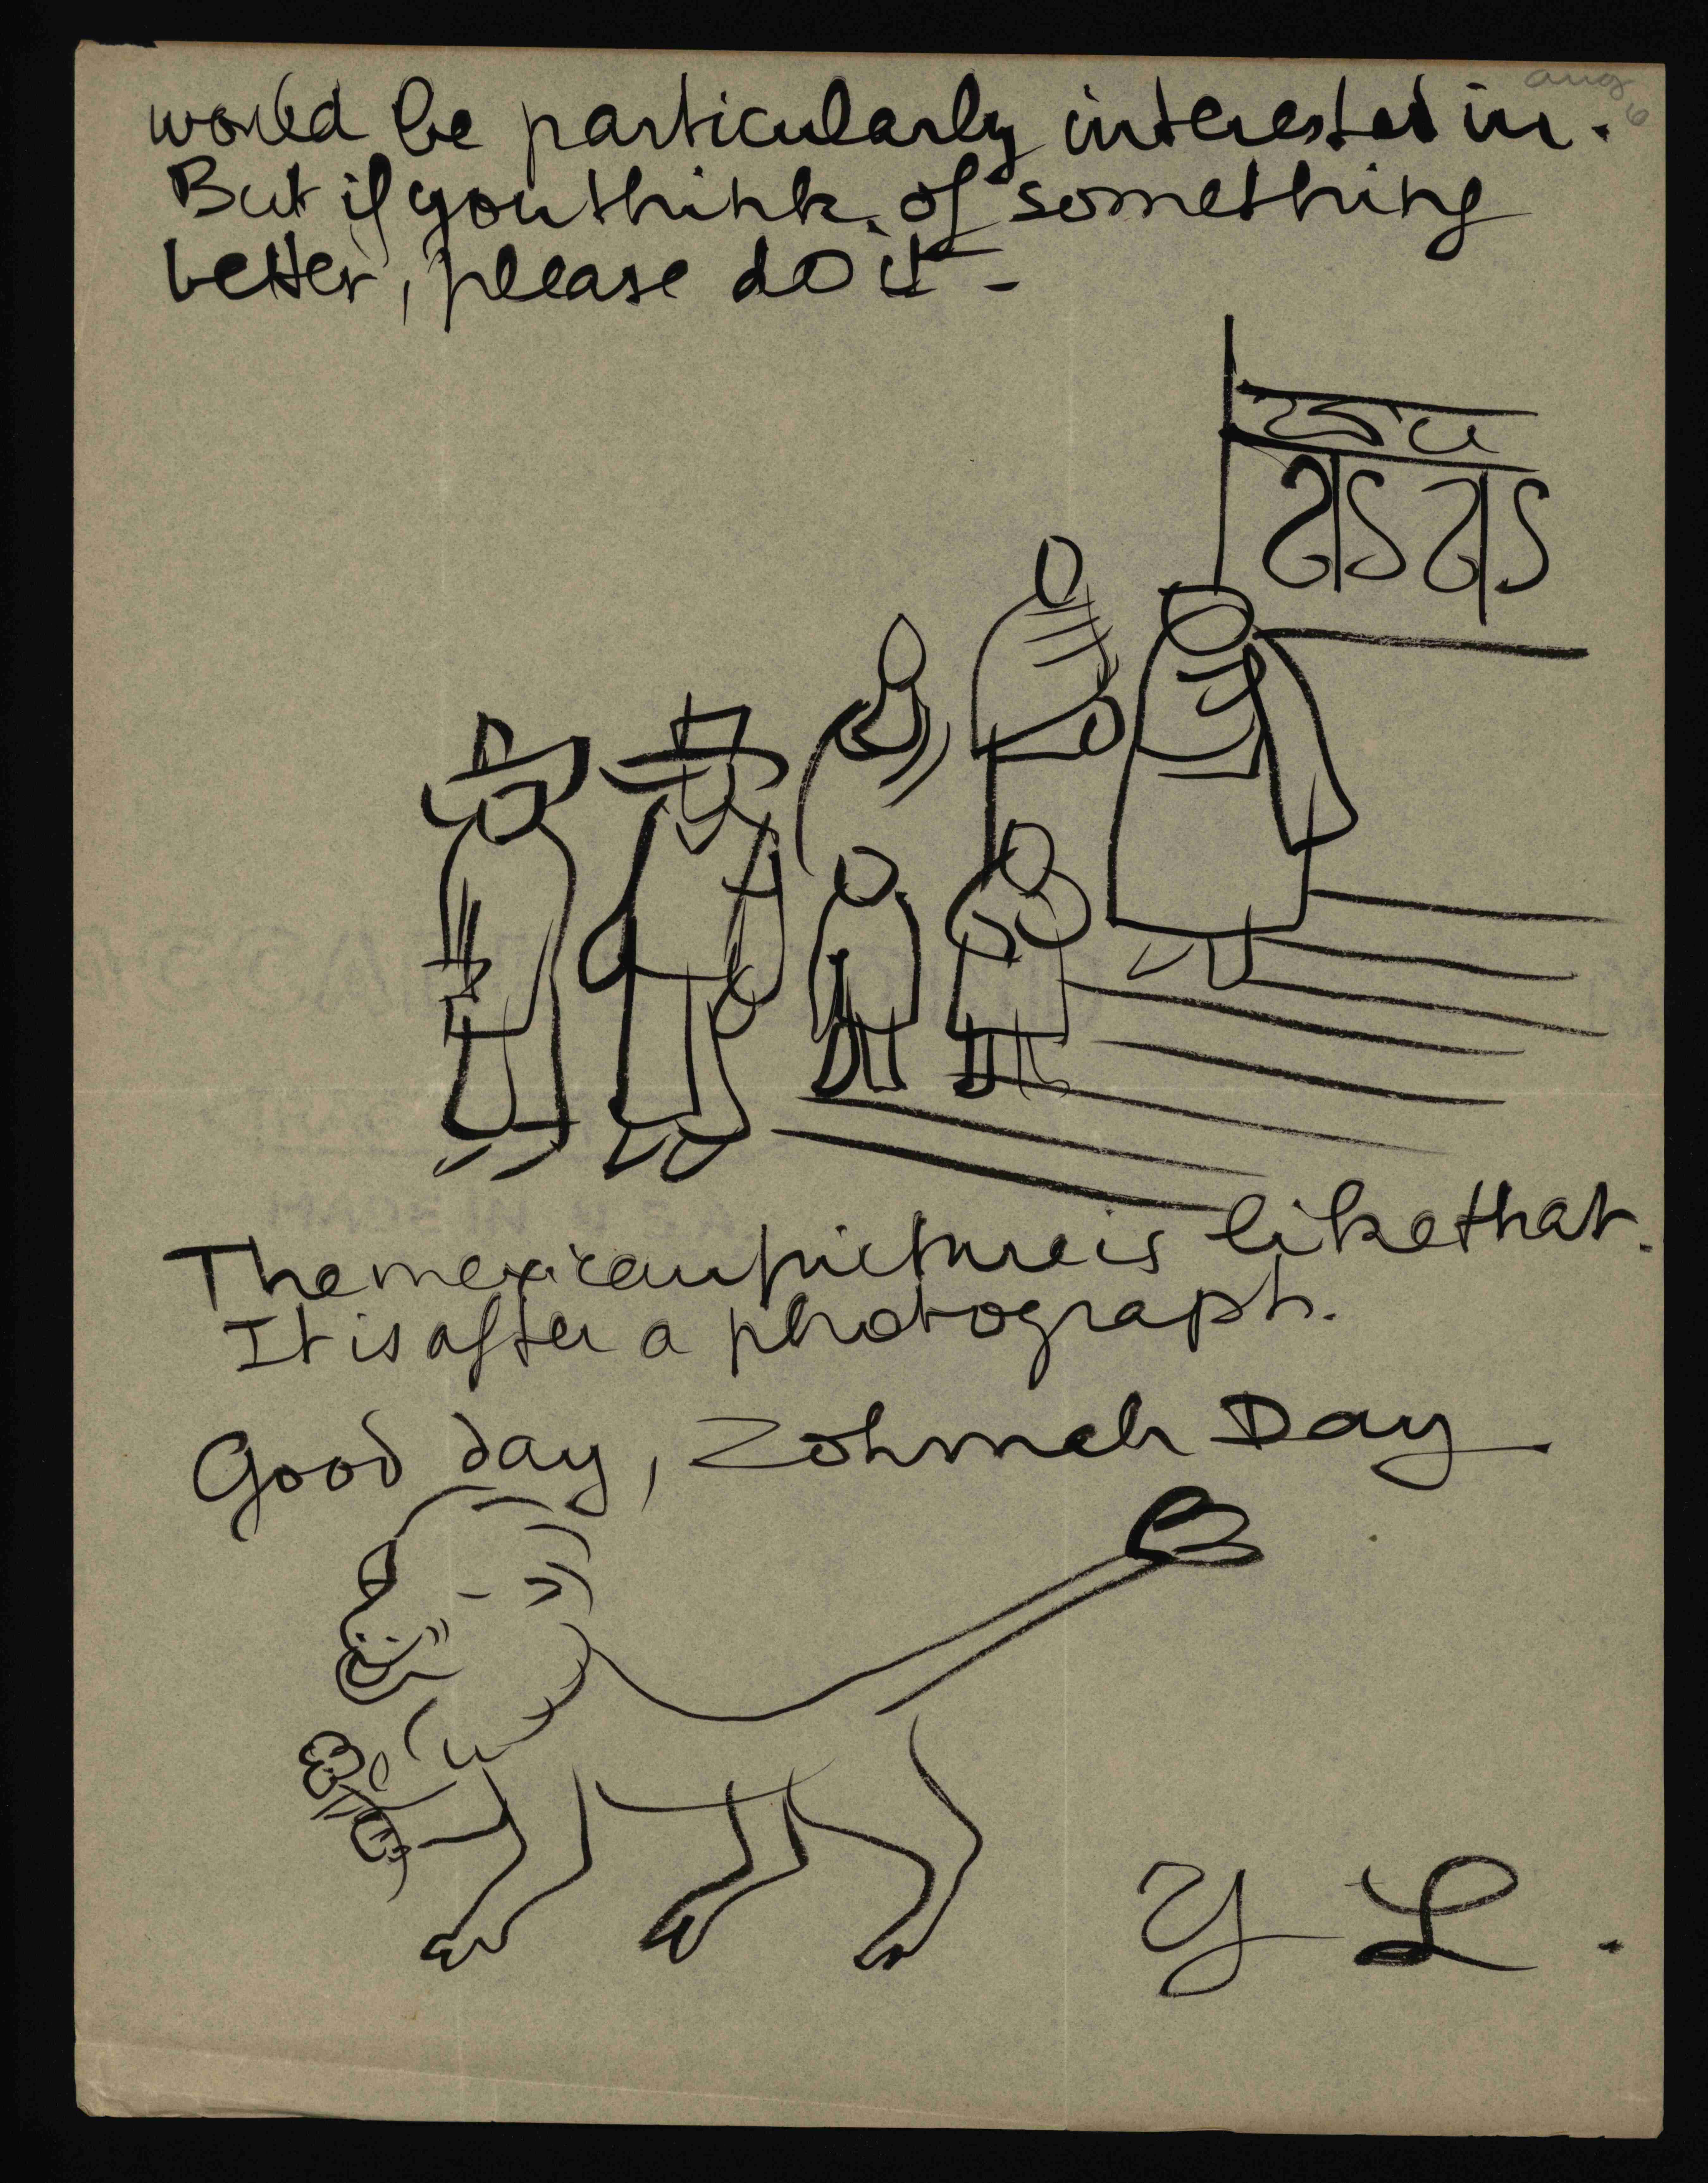 aug
6
would be particularly interested in.
But if you think of something
better, please do it –
The mexican picture is like that.
It is after a photograph.
Good day, Zohmah Day
Y L.